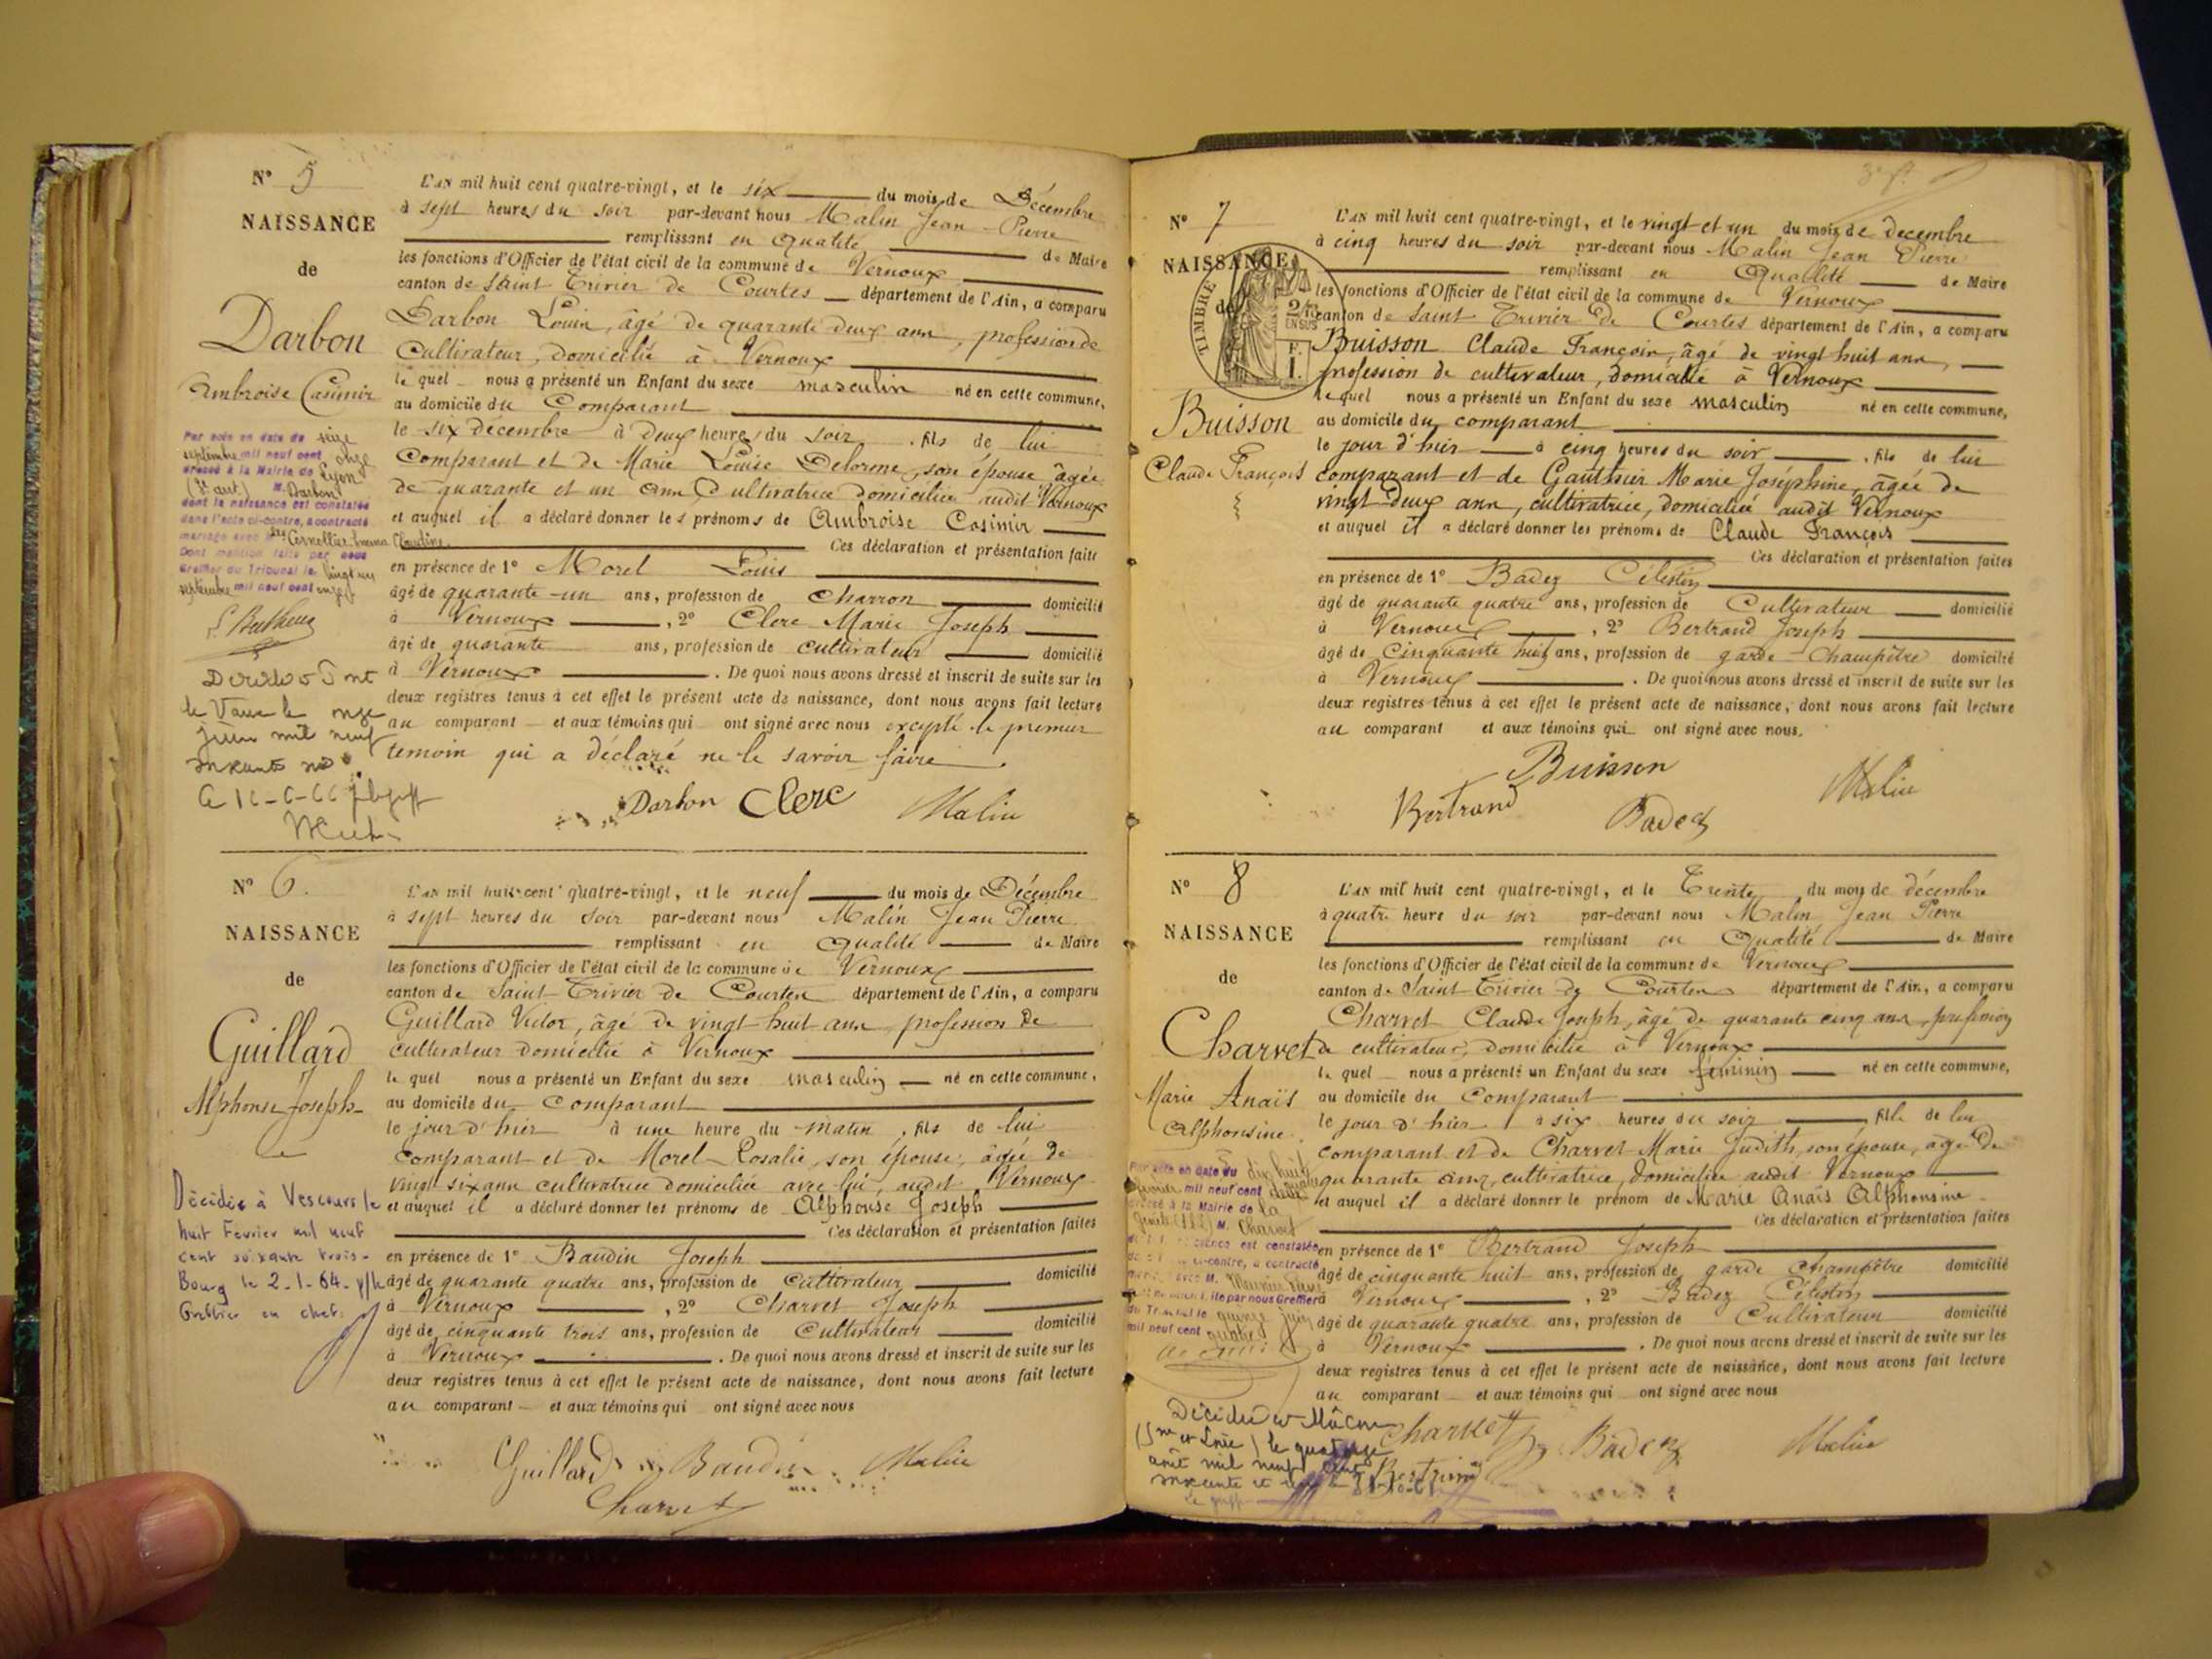 N° 5
NAISSANCE
de
Darbon
Ambroise Casimir
Par acte en date du seize
septembre mil neuf cent onze
dressé à la Mairie de Lyon
(3e arrt) M. Darbon
dont la naissance est constatée
dans l'acte ci-contre, a contracté
mariage avec Claudine
Dont mention faite par nous
Greffier du Tribunal le vingt un
septembre mil neuf cent onze
le onze
juin mil neuf
L'AN mil huit cent quatre-vingt, et le six du mois de Décembre
à sept heures du soir par-devant nous Malin Jean-Pierre
remplissant en qualité de Maire
les fonctions d'Officier de l'état civil de la commune de Vernoux
canton de Saint Trivier de Courtes département de l'Ain, a comparu
Darbon Louis, âgé de quarante deux ans, profession de
Cultivateur, domicilié à Vernoux
lequel nous a présenté un Enfant du sexe masculin né en cette commune,
au domicile du Comparant
le six décembre à Deux heures du soir, fils de lui
Comparant et de Marie Louise Delorme, son épouse âgée
de quarante et un ans Cultivatrice domiciliée audit Vernoux
et auquel il a déclaré donner les prénoms de Ambroise Casimir
Ces déclaration et présentation faite
en présence de 1° Morel Louis
âgé de quarante-un ans, profession de Charron domicilié
à Vernoux, 2° Clerc Marie Joseph
âgé de quarante ans, profession de cultivateur domicilié
à Vernoux. De quoi nous avons dressé et inscrit de suite sur les
deux registres tenus à cet effet le présent acte de naissance, dont nous avons fait lecture
au comparant et aux témoins qui ont signé avec nous excepté le premier
temoin qui a déclaré ne le savoir faire.
Darbon Clerc Malin
N° 6.
NAISSANCE
de
Guillard
Alphonse Joseph
Décédée à Vescours le
huit Février mil neuf
cent soixante trois
Bourg le 2-1-64
Greffier en chef
L'AN mil huit cent quatre-vingt, et le neuf du mois de Décembre
à sept heures du soir par-devant nous Malin Jean Pierre
remplissant en qualité de Maire
les fonctions d'Officier de l'état civil de la commune de Vernoux
canton de Saint Trivier de Courtes département de l'Ain, a comparu
Guillard Victor, âgé de vingt huit ans, profession de
cultivateur domicilié à Vernoux
lequel nous a présenté un Enfant du sexe masculin né en cette commune,
au domicile du Comparant
le jour d'hier à une heure du matin, fils de lui
comparant et de Morel Rosalie, son épouse, âgée de
vingt six ans cultivatrice domiciliée avec lui, audit Vernoux
et auquel il a déclaré donner les prénoms de Alphonse Joseph
Ces déclaration et présentation faites
en présence de 1° Baudin Joseph
âgé de quarante quatre ans, profession de Cultivateur domicilié
à Vernoux, 2° Charvet Joseph
âgé de cinquante trois ans, profession de Cultivateur domicilié
à Vernoux. De quoi nous avons dressé et inscrit de suite sur les
deux registres tenus à cet effet le présent acte de naissance, dont nous avons fait lecture
au comparant et aux témoins qui ont signé avec nous
Guillard Baudin Malin
Charvet
N° 7
NAISSANCE
de
TIMBRE
Buisson
Claude François
L'AN mil huit cent quatre-vingt, et le vingt et un du mois de décembre
à cinq heures du soir par-devant nous Malin Jean Pierre
remplissant en Qualité de Maire
les fonctions d'Officier de l'état civil de la commune de Vernoux
canton de Saint Trivier De Courtes département de l'Ain, a comparu
Buisson Claude François, âgé de vingt huit ans,
profession de cultivateur, domicilié à Vernoux
lequel nous a présenté un Enfant du sexe masculin né en cette commune,
au domicile du comparant
le jour d'hier à cinq heures du soir, fils de lui
comparant et de Gauthier Marie Joséphine, âgée de
vingt deux ans, cultivatrice, domiciliée audit Vernoux
et auquel il a déclaré donner les prénoms de Claude François
Ces déclaration et présentation faites
en présence de 1° Badez Célestin
âgé de quarante quatre ans, profession de Cultivateur domicilié
à Vernoux, 2° Bertrand Joseph
âgé de Cinquante huit ans, profession de garde-Champêtre domicilié
à Vernoux. De quoi nous avons dressé et inscrit de suite sur les
deux registres tenus à cet effet le présent acte de naissance, dont nous avons fait lecture
au comparant et aux témoins qui ont signé avec nous.
Buisson
Bertrand Badez Malin
N° 8
NAISSANCE
de
Charvet
Marie Anaïs
Alphonsine
Par acte en date du dix huit
février mil neuf cent
dressé à la Mairie de la
M. Charvet
est constatée
ci-contre, a contracté
avec M.
par nous Greffier
du Tribunal le quinze juin
mil neuf cent quatre
Décédée à Mâcon
(Sne et Loire) le quatorze
août mil neuf cent
soixante et
L'AN mil huit cent quatre-vingt, et le Trente du mois de décembre
à quatre heure du soir par-devant nous Malin Jean Pierre
remplissant en Qualité de Maire
les fonctions d'Officier de l'état civil de la commune de Vernoux
canton de Saint Trivier de Courtes département de l'Ain, a comparu
Charvet Claude Joseph, âgé de quarante cinq ans, profession
de cultivateur, domicilié à Vernoux
lequel nous a présenté un Enfant du sexe féminin né en cette commune,
au domicile du Comparant
le jour d'hier à six heures du soir, fille de lui
comparant et de Charvet Marie Judith, son épouse, âgée De
quarante ans, cultivatrice, domiciliée audit Vernoux
et auquel il a déclaré donner le prénom de Marie Anaïs Alphonsine
Ces déclaration et présentation faites
en présence de 1° Bertrand Joseph
âgé de cinquante huit ans, profession de garde champêtre domicilié
à Vernoux, 2° Badez Célestin
âgé de quarante quatre ans, profession de Cultivateur domicilié
à Vernoux. De quoi nous avons dressé et inscrit de suite sur les
deux registres tenus à cet effet le présent acte de naissance, dont nous avons fait lecture
au comparant et aux témoins qui ont signé avec nous
Charvet Badez Malin
Bertrand